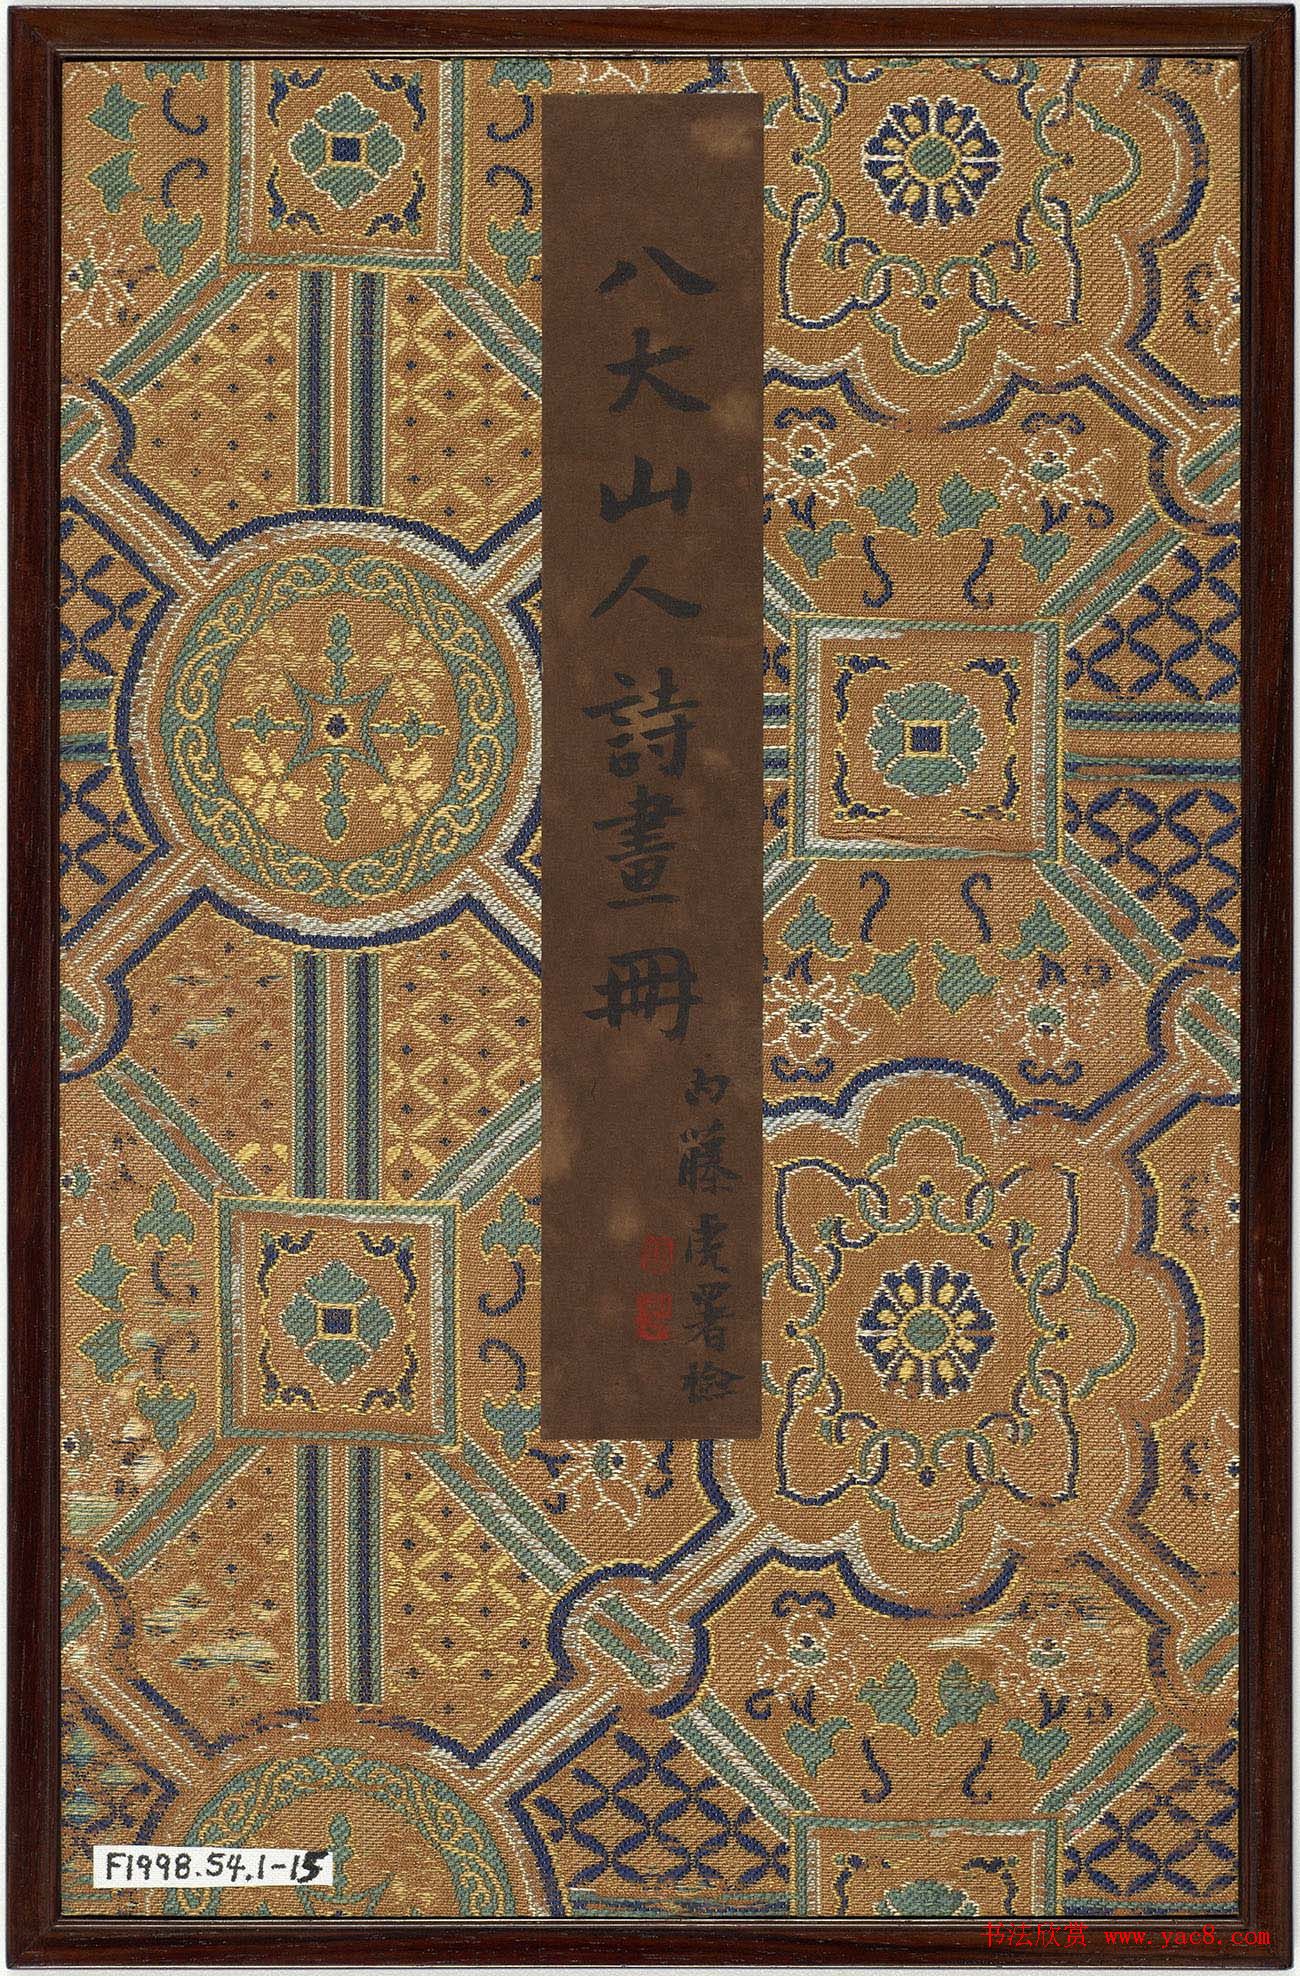 八大山人詩畫冊
内藤虎署檢
F1998.54.1-15
书法欣赏 www.yac8.com